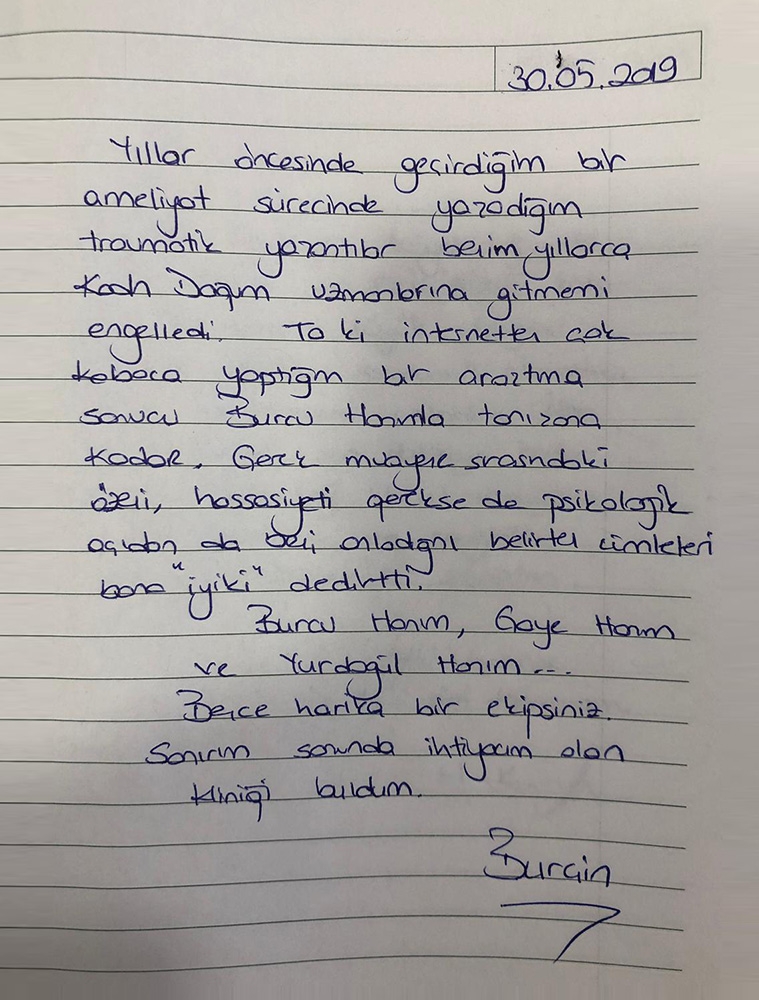 30.05.2019
Yıllar öncesinde geçirdiğim bir
ameliyat sürecinde yaşadığım
travmatik yaşantılar benim yıllarca
Kadın Doğum uzmanlarına gitmemi
engelledi. Ta ki internetten çok
kabaca yaptığım bir araştırma
sonucu Burcu Hanımla tanışana
kadar. Gerek muayene sırasındaki
özeni, hassasiyeti gerekse de psikolojik
açıdan da beni anladığını belirten cümleleri
bana "iyiki" dedirtti.
Burcu Hanım, Gaye Hanım
ve Yurdagül Hanım...
Bence harika bir ekipsiniz.
Sanırım sonunda ihtiyacım olan
kliniği buldum.
Burçin